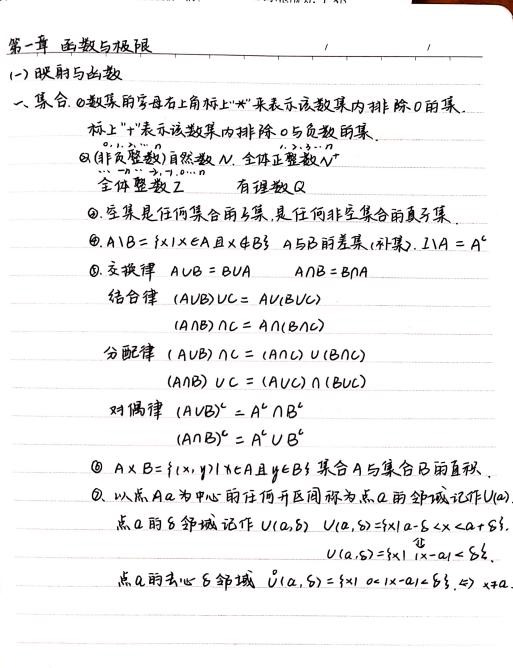 第一章 函数与极限
(一) 映射与函数
一、集合. ①数集的字母右上角标上"*"来表示该数集内排除0的集.
标上"+"表示该数集内排除0与负数的集.
0,1,2,…n 1,2,3…n
②(非负整数)自然数N. 全体正整数N⁺
…-n…-2,-1,0…n
全体整数Z 有理数Q
③.空集是任何集合的子集,是任何非空集合的真子集.
④.A\B={x|x∈A且x∉B} A与B的差集(补集). I\A=Aᶜ
⑤.交换律 A∪B=B∪A A∩B=B∩A
结合律 (A∪B)∪C=A∪(B∪C)
(A∩B)∩C=A∩(B∩C)
分配律 (A∪B)∩C=(A∩C)∪(B∩C)
(A∩B)∪C=(A∪C)∩(B∪C)
对偶律 (A∪B)ᶜ=Aᶜ∩Bᶜ
(A∩B)ᶜ=Aᶜ∪Bᶜ
⑥ A×B={(x,y)|x∈A且y∈B} 集合A与集合B的直积.
⑦、以点Aa为中心的任何开区间称为点a的邻域记作U(a).
点a的δ邻域记作 U(a,δ) U(a,δ)={x|a-δ<x<a+δ}.
⇕
U(a,δ)={x| |x-a|<δ}.
点a的去心δ邻域 Ů(a,δ)={x| 0<|x-a|<δ}.⇔ x≠a.